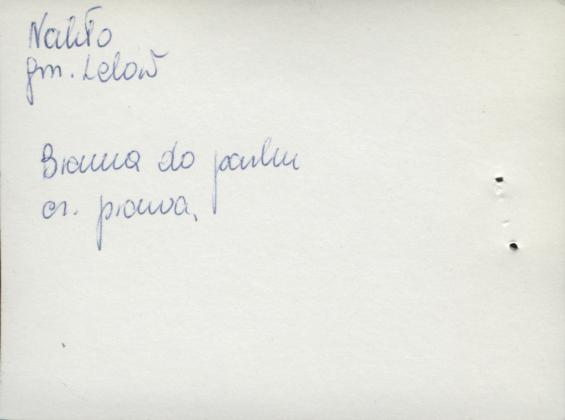 Nakło
gm. Lelów
Brama do parku
cz. prawa,